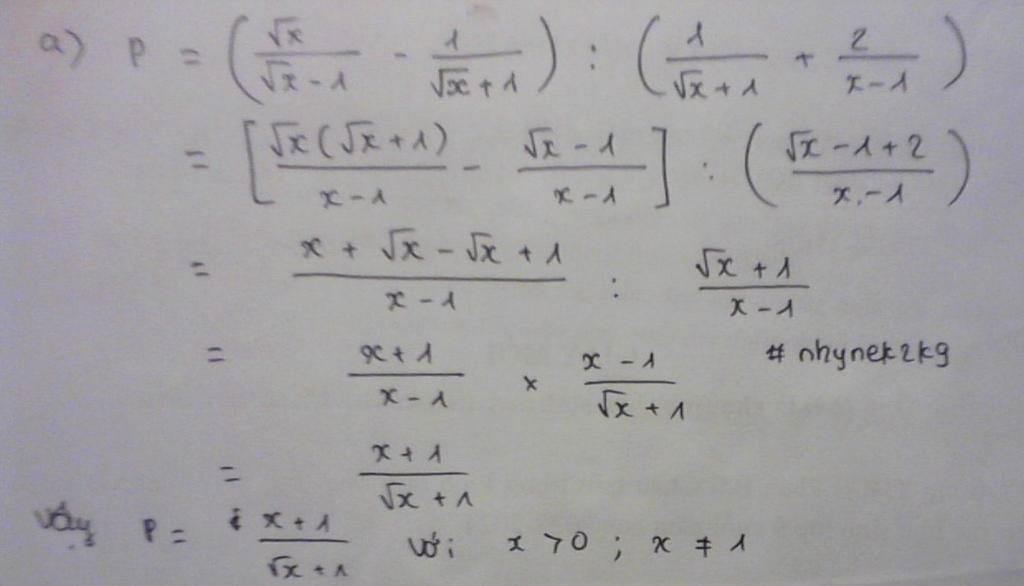 a) P = (√x/(√x-1) - 1/(√x+1)) : (1/(√x+1) + 2/(x-1))
= [√x(√x+1)/(x-1) - (√x-1)/(x-1)] : ((√x-1+2)/(x-1))
= (x+√x-√x+1)/(x-1) : (√x+1)/(x-1)
= (x+1)/(x-1) × (x-1)/(√x+1) # nhynek2kg
= (x+1)/(√x+1)
vậy P = (x+1)/(√x+1) với x > 0 ; x ≠ 1